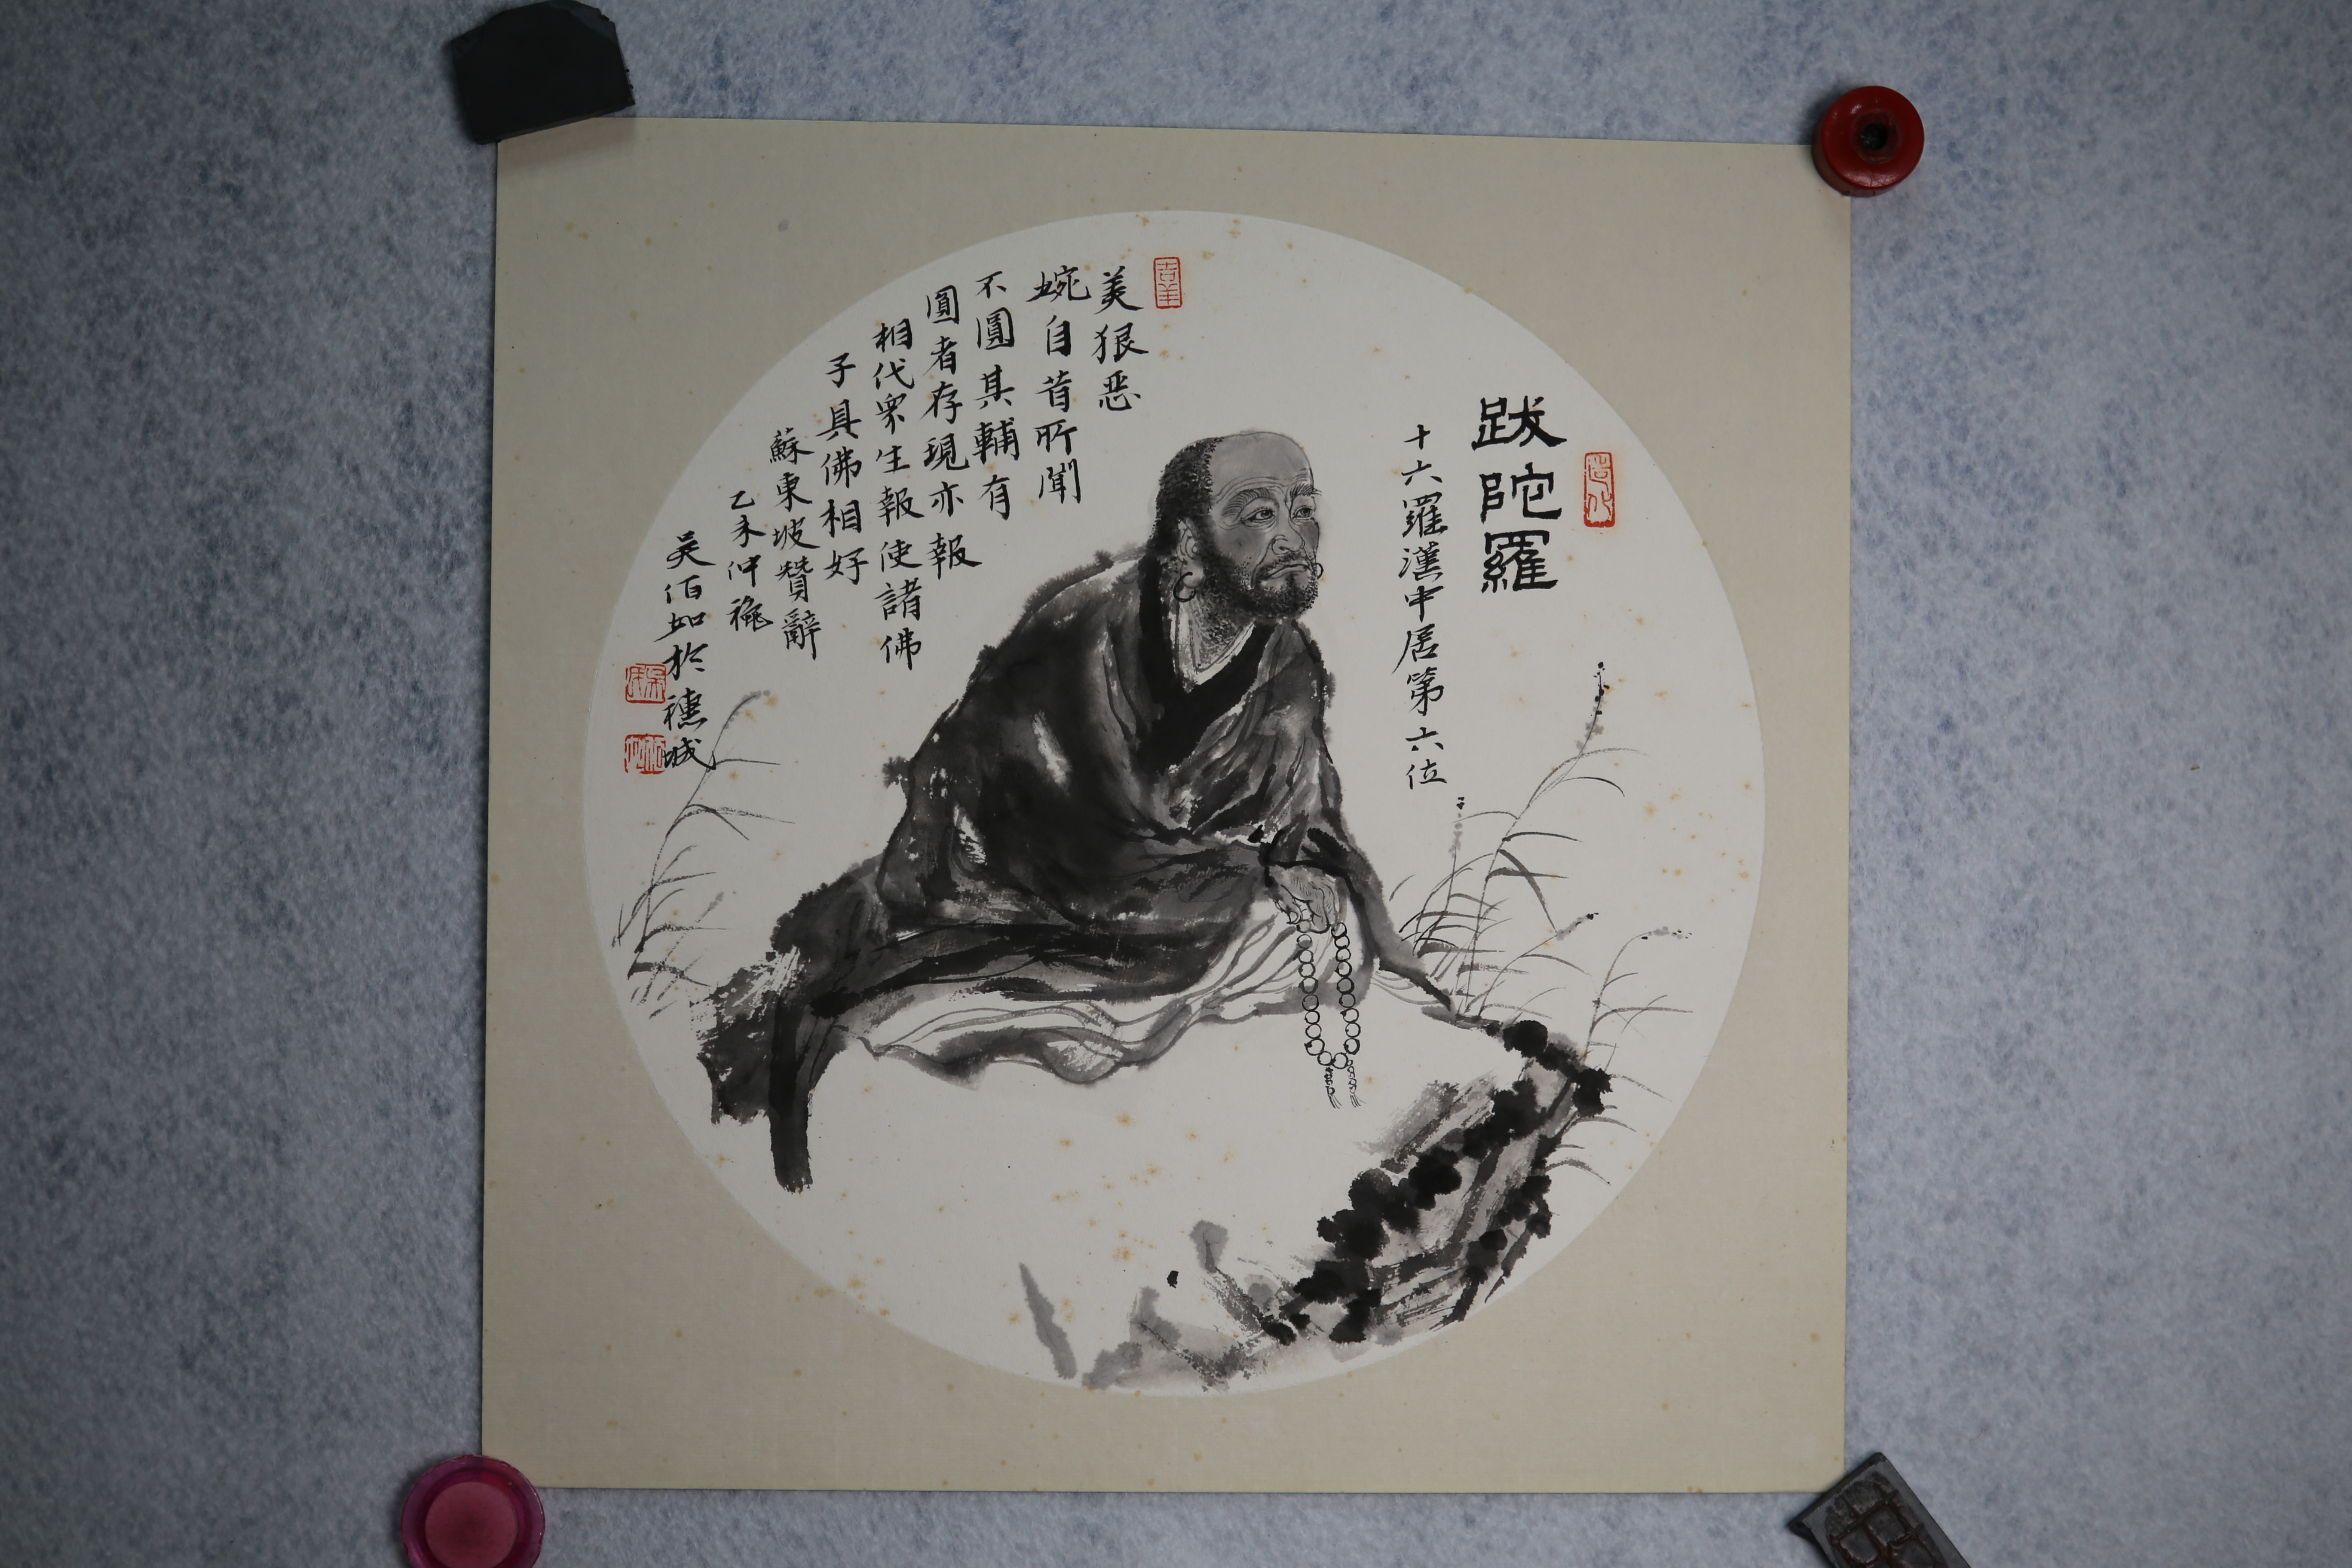 跋陀羅
十六羅漢中居第六位
吉羊
美狠恶
婉自昔所聞
不圓其輔有
圓者存現亦報
相代眾生報使諸佛
子具佛相好
蘇東坡贊辭
乙未仲穐
吳佰如於穗城